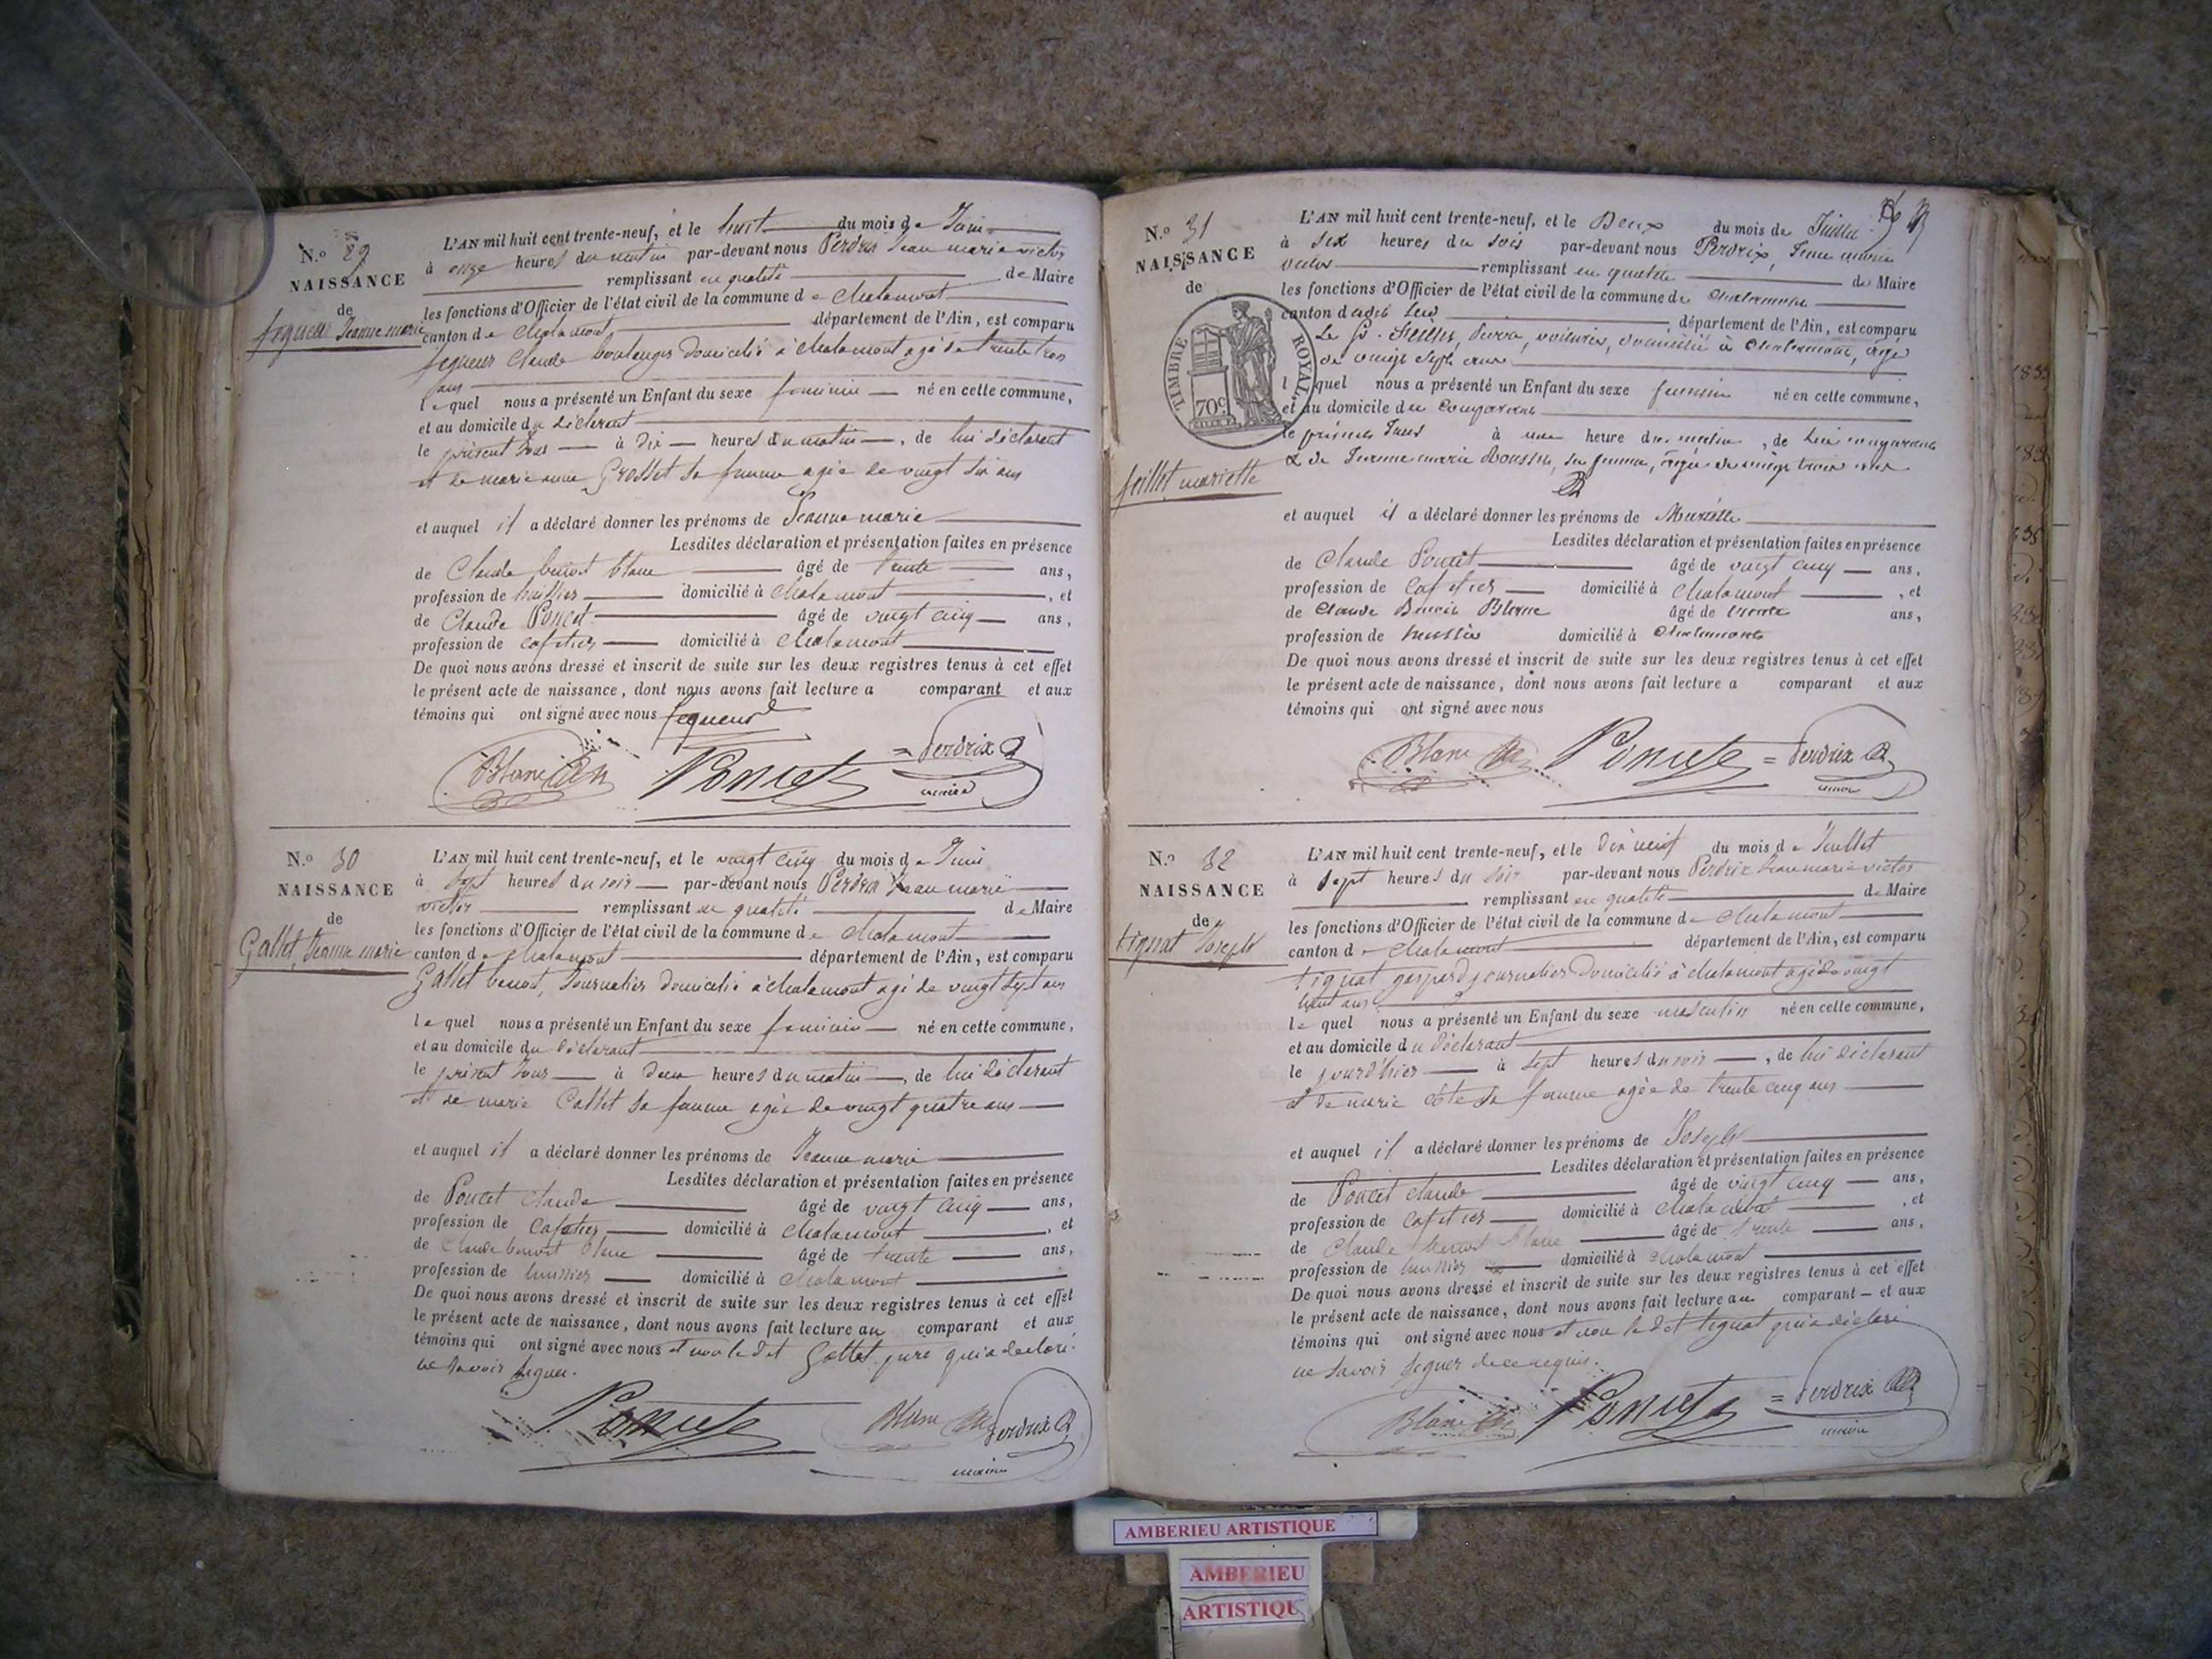 N.o 29
NAISSANCE
de
Jeanne marie
L'AN mil huit cent trente-neuf, et le huit du mois de Juin
à onze heures du matin par-devant nous Perdrix Jean marie victor
remplissant en qualité de Maire
les fonctions d'Officier de l'état civil de la commune de Chalamont
canton de Chalamont département de l'Ain, est comparu
Claude boulanger Domicilié à Chalamont agé de trente trois
ans
lequel nous a présenté un Enfant du sexe feminin né en cette commune,
et au domicile du déclarant
le présent Jour à Dix heures du matin, de lui déclarant
et de marie anne Grosset sa femme agée de vingt six ans
et auquel il a déclaré donner les prénoms de Jeanne marie
Lesdites déclaration et présentation faites en présence
de Claude benoit blanc âgé de trente ans,
profession de huissier domicilié à Chalamont, et
de Claude Poncet âgé de vingt cinq ans,
profession de cafetier domicilié à Chalamont
De quoi nous avons dressé et inscrit de suite sur les deux registres tenus à cet effet
le présent acte de naissance, dont nous avons fait lecture a comparant et aux
témoins qui ont signé avec nous
Blanc Poncet Perdrix
maire
N.o 30
NAISSANCE
de
Gallet, Jeanne marie
L'AN mil huit cent trente-neuf, et le vingt cinq du mois de Juin
à Sept heures du soir par-devant nous Perdrix Jean marie
victor remplissant en qualité de Maire
les fonctions d'Officier de l'état civil de la commune de Chalamont
canton de Chalamont département de l'Ain, est comparu
Gallet benoit, Journalier domicilié à Chalamont agé de vingt sept ans
lequel nous a présenté un Enfant du sexe feminin né en cette commune,
et au domicile du déclarant
le présent Jour à Deux heures du matin, de lui déclarant
et de marie Callet sa femme agée de vingt quatre ans
et auquel il a déclaré donner les prénoms de Jeanne marie
Lesdites déclaration et présentation faites en présence
de Poncet Claude âgé de vingt cinq ans,
profession de Cafetier domicilié à Chalamont, et
de Claude benoit blanc âgé de trente ans,
profession de huissier domicilié à Chalamont
De quoi nous avons dressé et inscrit de suite sur les deux registres tenus à cet effet
le présent acte de naissance, dont nous avons fait lecture au comparant et aux
témoins qui ont signé avec nous et non le dit Gallet père qui a declaré
ne savoir signer.
Poncet Blanc Perdrix
maire
N.o 31
NAISSANCE
de
TIMBRE ROYAL
70c
feillet mariette
L'AN mil huit cent trente-neuf, et le Deux du mois de Juillet
à six heures du soir par-devant nous Perdrix, Jean marie
victor remplissant en qualité de Maire
les fonctions d'Officier de l'état civil de la commune de Chalamont
canton dudit lieu département de l'Ain, est comparu
Le Sr. feillet, voiturier, domicilié à Chalamont, âgé
de vingt sept ans
lequel nous a présenté un Enfant du sexe feminin né en cette commune,
et au domicile du comparant
le présent Jour à une heure du matin, de lui comparant
& de Jeanne marie Rousset, sa femme, âgée de vingt trois ans
et auquel il a déclaré donner les prénoms de Mariette
Lesdites déclaration et présentation faites en présence
de Claude Poncet âgé de vingt cinq ans,
profession de Cafetier domicilié à Chalamont, et
de Claude Benoit Blanc âgé de trente ans,
profession de huissier domicilié à Chalamont
De quoi nous avons dressé et inscrit de suite sur les deux registres tenus à cet effet
le présent acte de naissance, dont nous avons fait lecture a comparant et aux
témoins qui ont signé avec nous
Blanc Poncet Perdrix
maire
N.o 32
NAISSANCE
de
tignat Joseph
L'AN mil huit cent trente-neuf, et le Dix neuf du mois de Juillet
à Sept heures du soir par-devant nous Perdrix Jean marie victor
remplissant en qualité de Maire
les fonctions d'Officier de l'état civil de la commune de Chalamont
canton de Chalamont département de l'Ain, est comparu
tignat gaspard journalier Domicilié à Chalamont agé de vingt
huit ans
lequel nous a présenté un Enfant du sexe masculin né en cette commune,
et au domicile du déclarant
le jourd'hier à sept heures du soir, de lui déclarant
et de marie côte sa femme agée de trente cinq ans
et auquel il a déclaré donner les prénoms de Joseph
Lesdites déclaration et présentation faites en présence
de Poncet Claude âgé de vingt cinq ans,
profession de Cafetier domicilié à Chalamont, et
de Claude Benoit blanc âgé de trente ans,
profession de huissier domicilié à Chalamont
De quoi nous avons dressé et inscrit de suite sur les deux registres tenus à cet effet
le présent acte de naissance, dont nous avons fait lecture au comparant et aux
témoins qui ont signé avec nous et non le dit tignat qui a déclaré
ne savoir signer de ce requis.
Blanc Poncet Perdrix
maire
AMBERIEU ARTISTIQUE
AMBERIEU
ARTISTIQUE